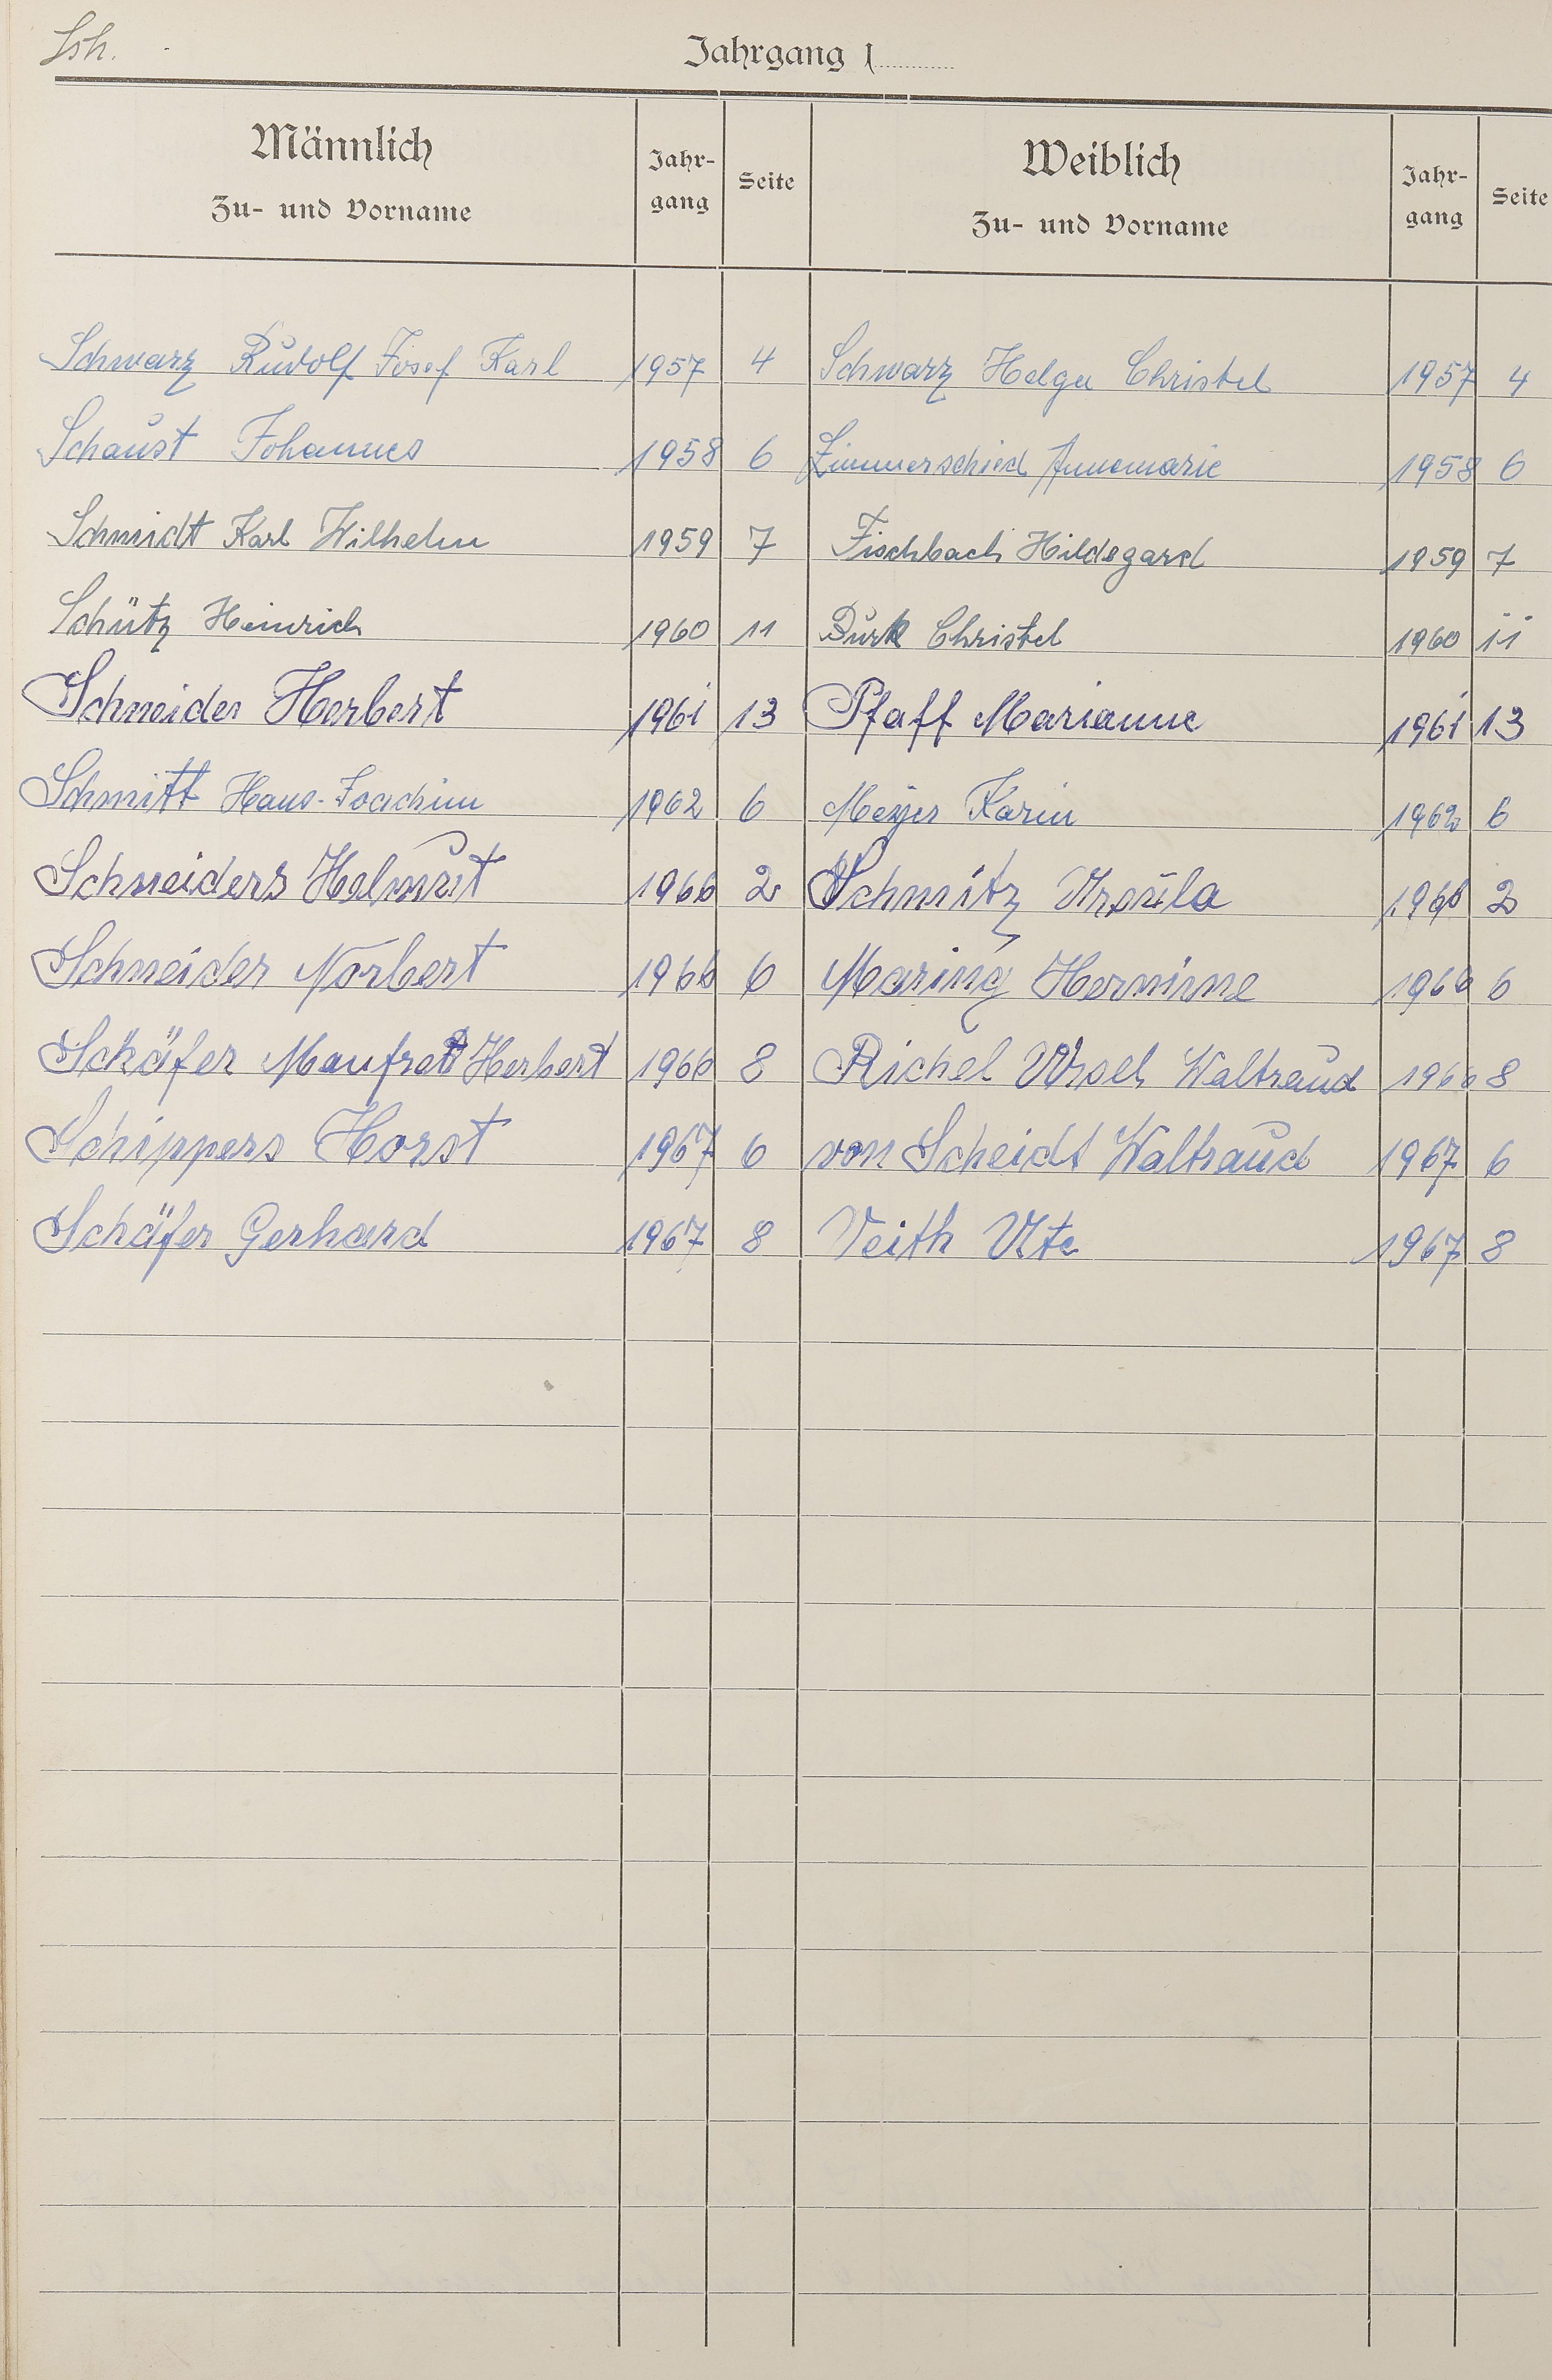 Sch.
Jahrgang 1
Männlich
Zu- und Vorname
Jahr-
gang
Seite
Weiblich
Zu- und Vorname
Jahr-
gang
Seite
Schwarz Rudolf Josef Karl 1957 4 Schwarz Helga Christel 1957 4
Schaust Johannes 1958 6 Zimmerschied Annemarie 1958 6
Schmidt Karl Wilhelm 1959 7 Fischbach Hildegard 1959 7
Schütz Heinrich 1960 11 Burk Christel 1960 11
Schneider Herbert 1961 13 Pfaff Marianne 1961 13
Schmitt Hans-Joachim 1962 6 Meyer Karin 1962 6
Schneiders Helmut 1966 2 Schmitz Ursula 1966 2
Schneider Norbert 1966 6 Maring Hermine 1966 6
Schäfer Manfred Herbert 1966 8 Richel Ursel Waltraud 1966 8
Schippers Horst 1967 6 von Scheidt Waltraud 1967 6
Schäfer Gerhard 1967 8 Veith Ute 1967 8